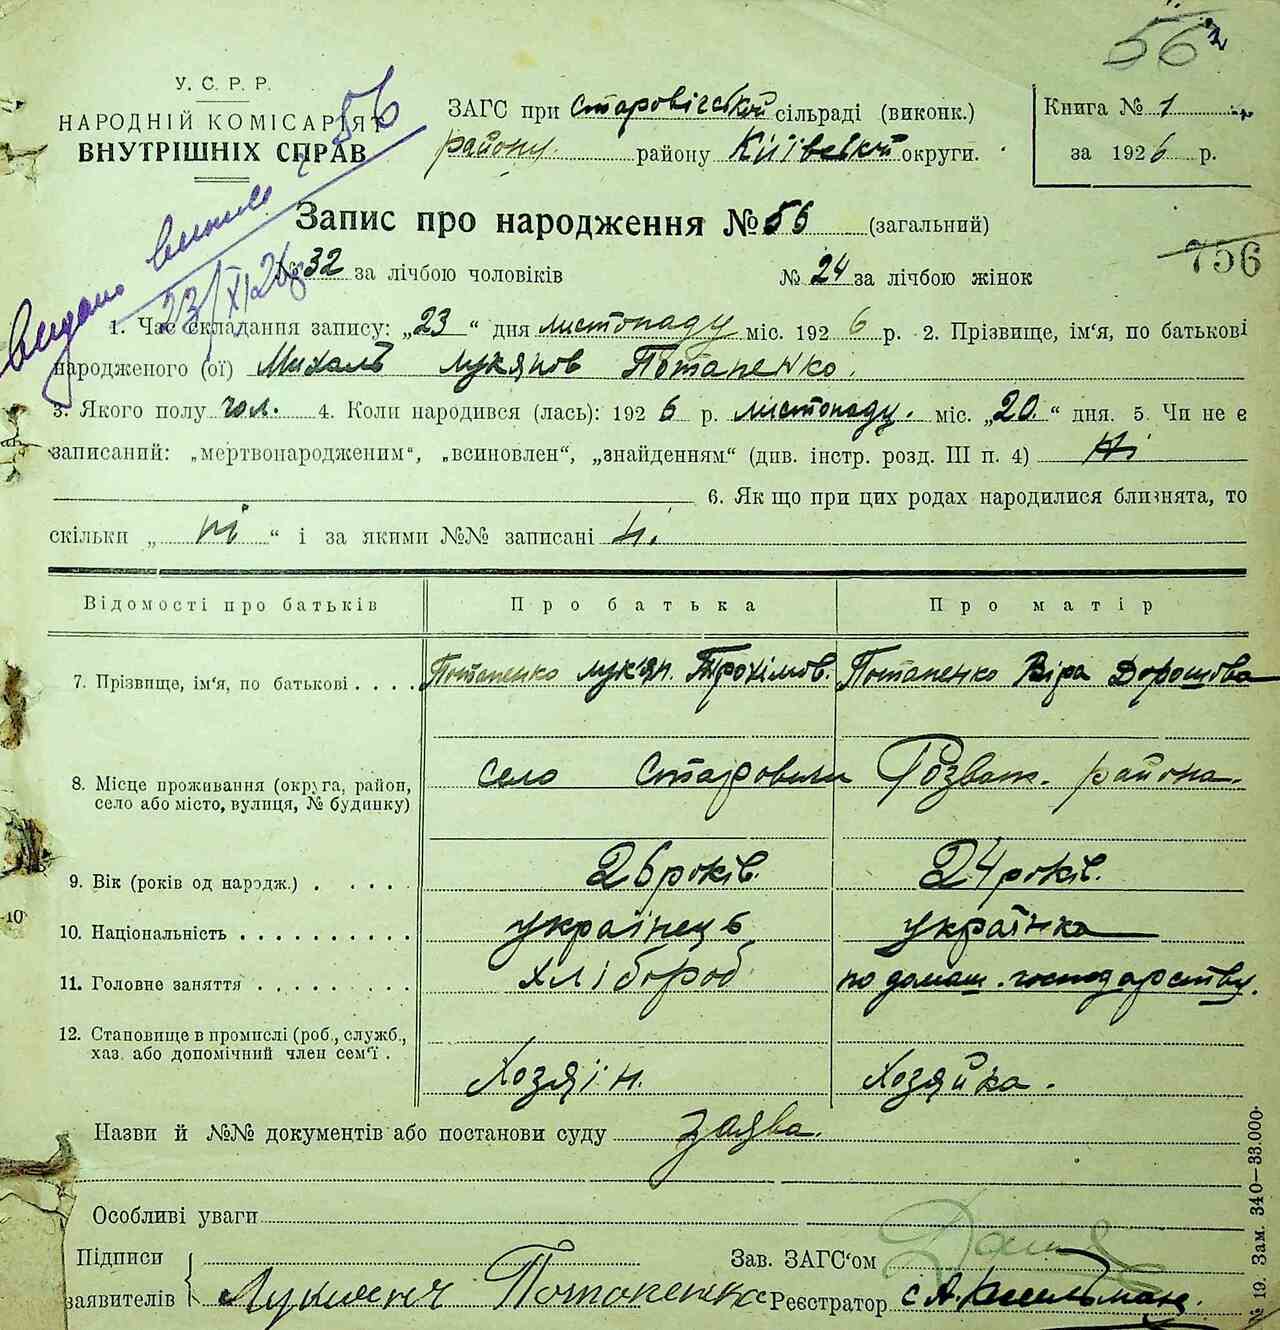 56
У. С. Р. Р.
НАРОДНІЙ КОМІСАРІЯТ
ВНУТРІШНІХ СПРАВ
56
ЗАГС при Старовічській сільраді (виконк.)
району району Київській округи.
Книга № 1
за 1926 р.
Видано виписъ
23/XI 26
Запис про народження № 56 (загальний)
№ 32 за лічбою чоловіків № 24 за лічбою жінок
756
1. Час складання запису: „23“ дня листопаду міс. 1926 р. 2. Прізвище, ім'я, по батькові
народженого (ої) Михаль Лукянов Потапенко.
3. Якого полу чол. 4. Коли народився (лась): 1926 р. листопаду. міс. „20.“ дня. 5. Чи не є
записаний: „мертвонародженим“, „всиновлен“, „знайденням“ (див. інстр. розд. III п. 4) Ні
6. Як що при цих родах народилися близнята, то
скільки „ні“ і за якими №№ записані н.
Відомості про батьків Про батька Про матір
7. Прізвище, ім'я, по батькові . . . . Потапенко Лук'ян. Трохімов. Потапенко Віра Дорошова
8. Місце проживання (округа, район, село або місто, вулиця, № будинку) село Старовичи Розваж. района.
9. Вік (років од народж.) . . . . . 26 років. 24 років.
10. Національність . . . . . . . . . . українець українка
11. Головне заняття . . . . . . . . . хлібороб по домаш. господарству.
12. Становище в промислі (роб., служб., хаз. або допомічний член сем'ї . Хозяїн. Хозяйка.
Назви й №№ документів або постанови суду заява.
Особливі уваги
Підписи
заявителів
Зав. ЗАГС'ом
Потапенко Реєстратор
№ 19. Зам. 340—33.000.
10